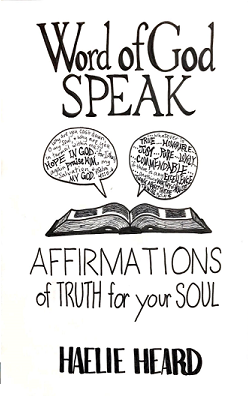 Word of God
SPEAK
HOPE IN GOD
praise HIM,
MY GOD
whatever
TRUE.. HONORABLE..
JUST.. PURE.. LOVELY..
COMMENDABLE..
EXCELLENCE
AFFIRMATIONS
of TRUTH for your SOUL
HAELIE HEARD